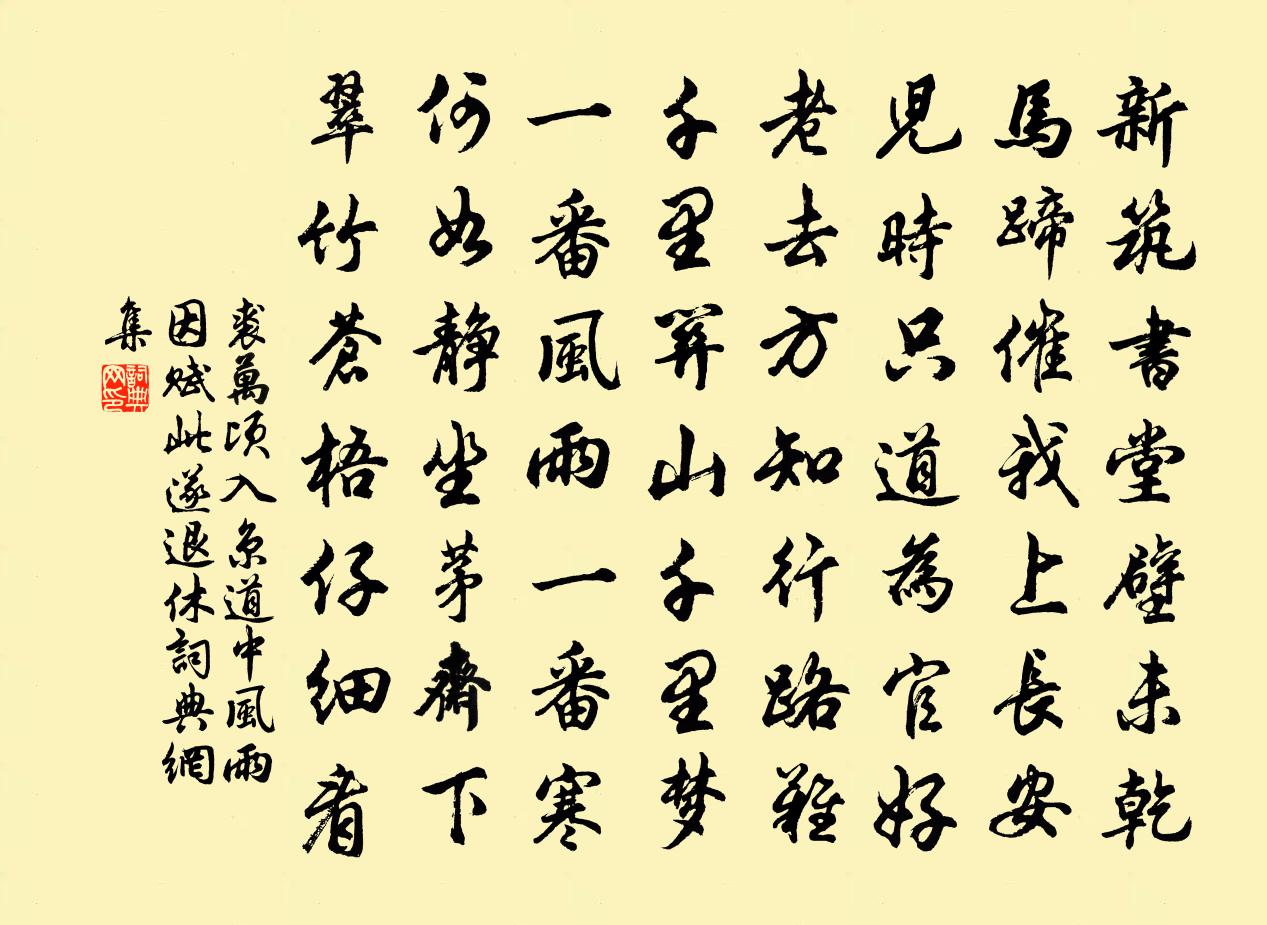 新筑書堂壁未乾
馬蹄催我上長安
児時只道為官好
老去方知行路難
千里関山千里梦
一番風雨一番寒
何如静坐茅齋下
翠竹蒼梧仔細看
裘萬頃入京道中風雨
因赋此遂退休詞典網
集
詞典
网印